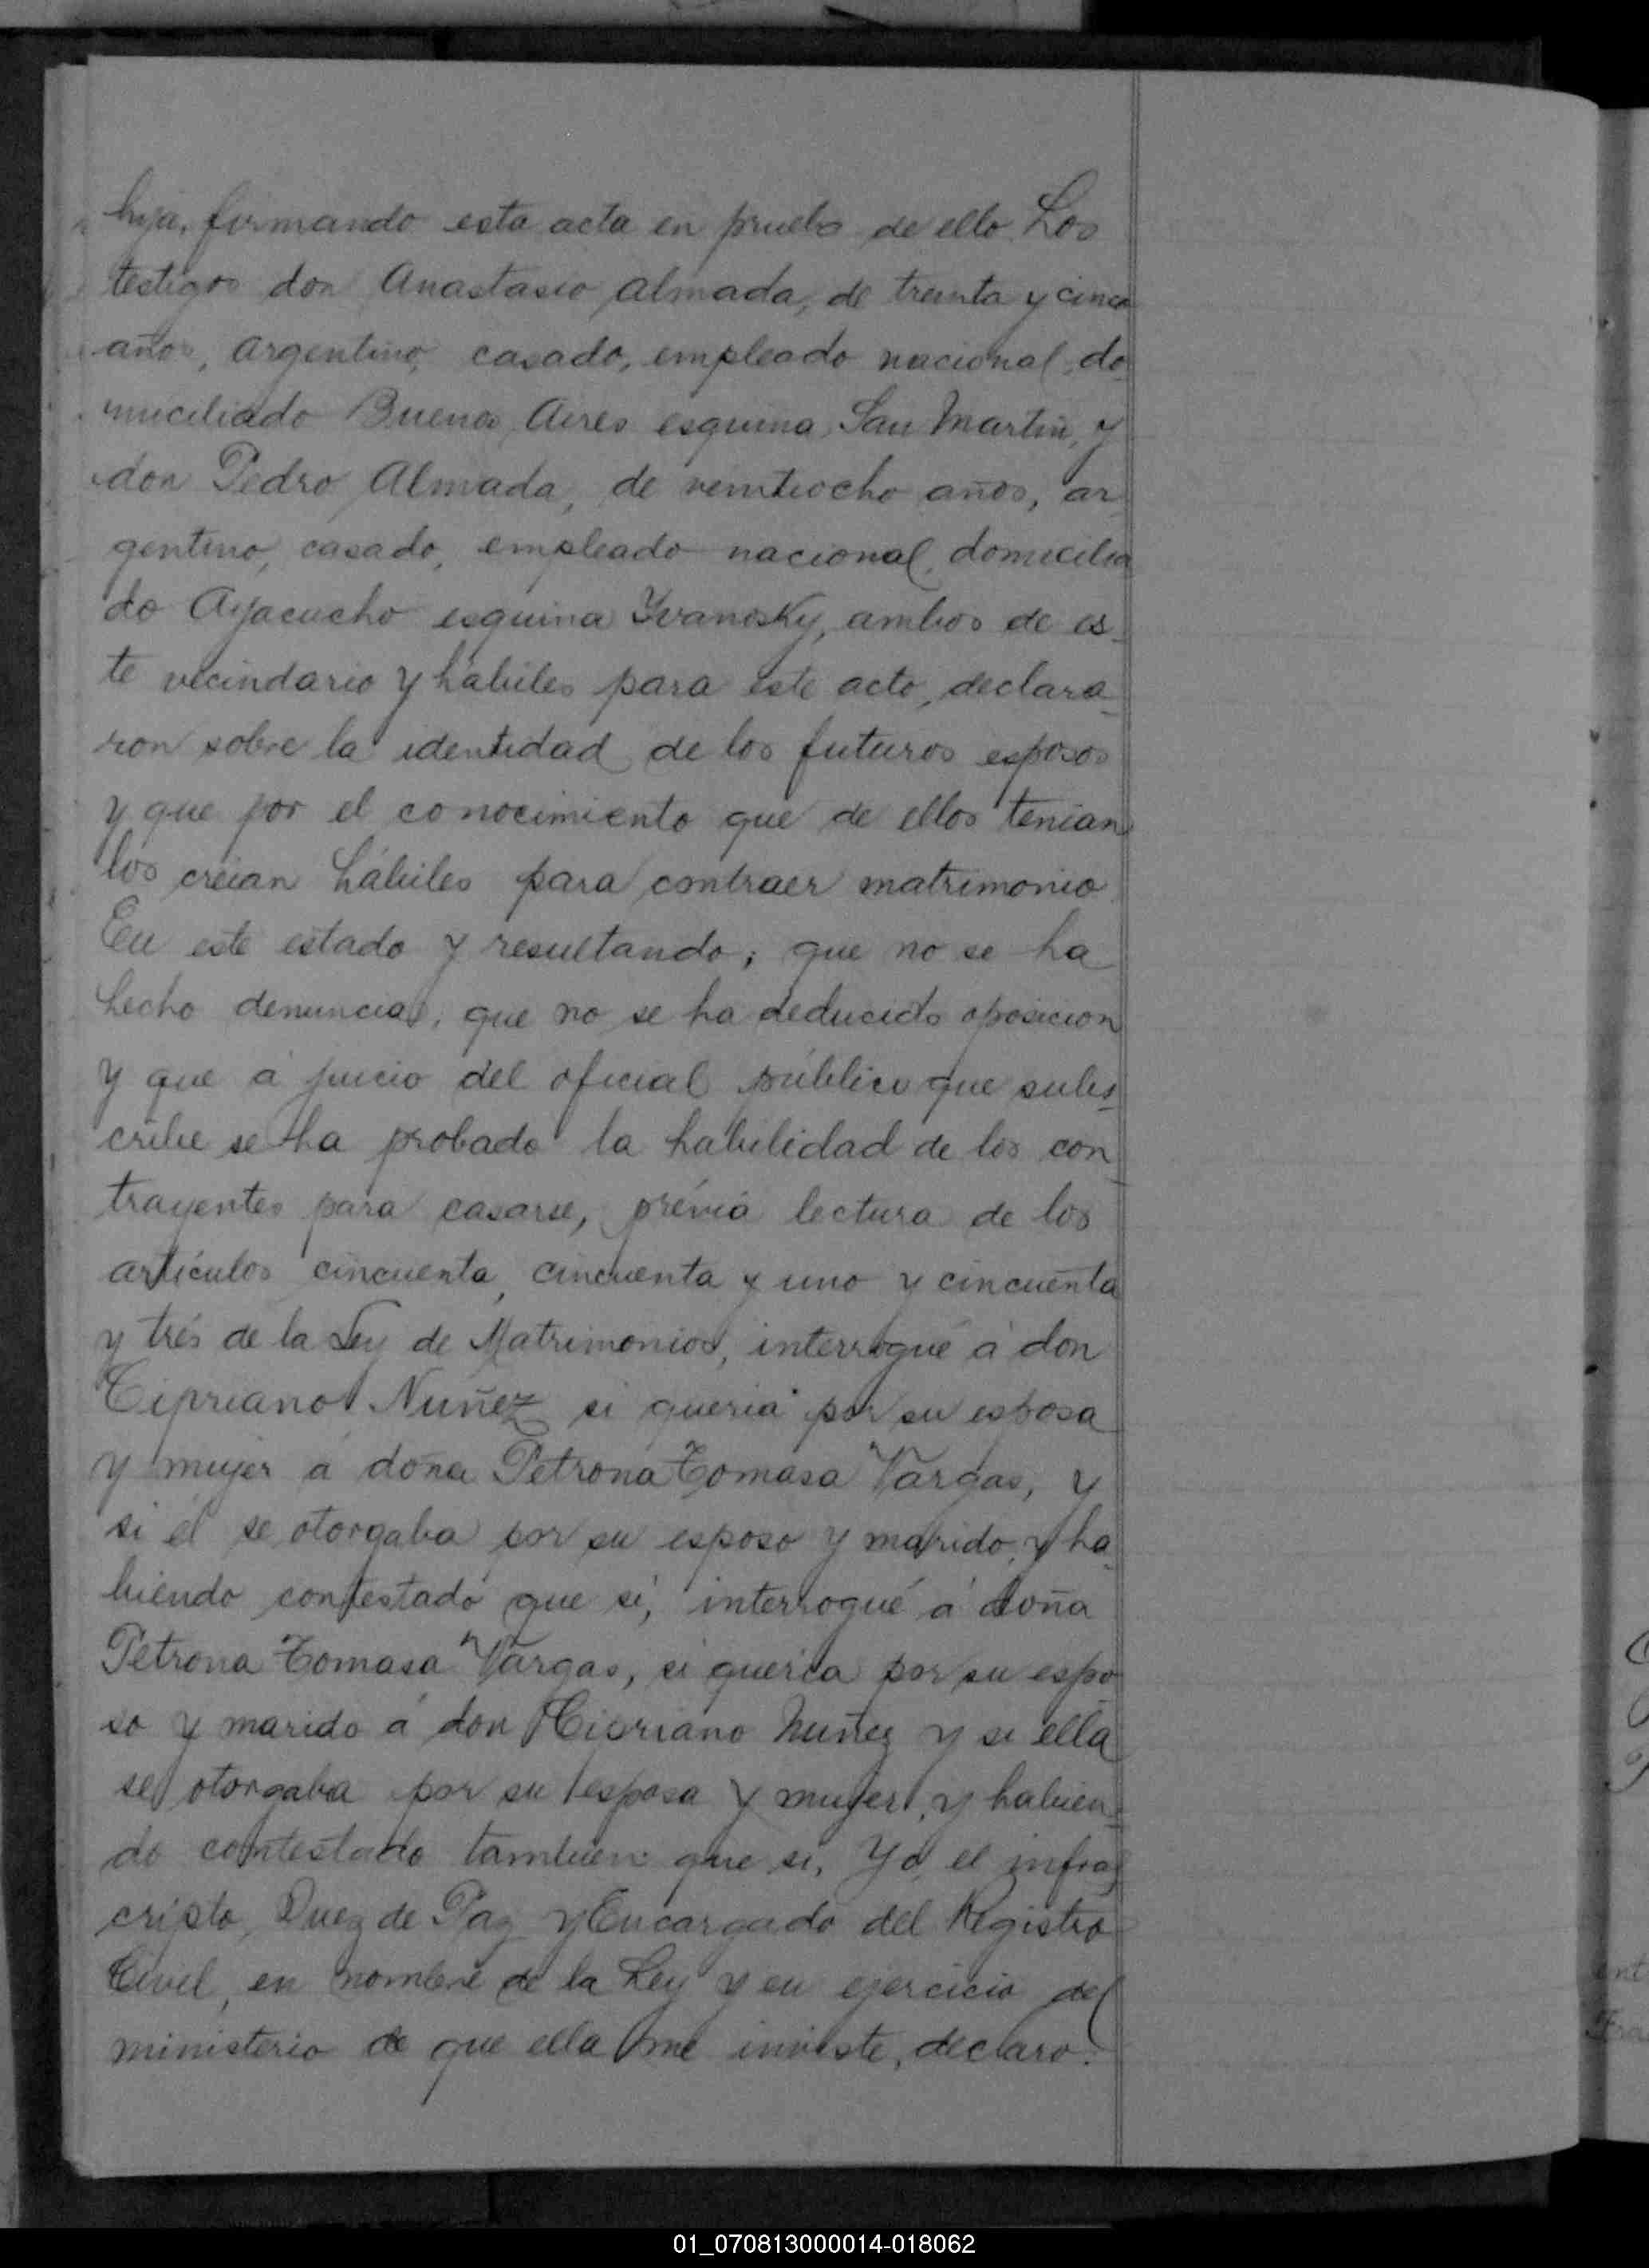 hija, firmando esta acta en prueba de ello. Los
testigos don Anastasio Almada, de treinta y cinco
años, argentino, casado, empleado nacional, do
miciliado Buenos Aires esquina San Martin, y
don Pedro Almada, de veintiocho años, ar
gentino, casado, empleado nacional, domicilia
do Ayacucho esquina Yvanosky, ambos de es-
te vecindario y hábiles para este acto, declara-
ron sobre la identidad de los futuros esposos
y que por el conocimiento que de ellos tenian
los creian hábiles para contraer matrimonio.
En este estado y resultando; que no se ha
hecho denuncias, que no se ha deducido oposicion
y que á juicio del oficial público que subs-
cribe se ha probado la habilidad de los con-
trayentes para casarse, prévia lectura de los
artículos cincuenta, cincuenta y uno y cincuenta
y trés de la Ley de Matrimonios, interrogué á don
Cipriano Nuñez si queria por su esposa
y mujer á doña Petrona Tomasa Vargas, y
si él se otorgaba por su esposo y marido, y ha-
biendo contestado que sí, interrogué á doña
Petrona Tomasa Vargas, si queria por su espo
so y marido á don Cipriano Nuñez y si ella
se otorgaba por su esposa y mujer, y habien-
do contestado tambien que si, Yo, el infras
cripto, Juez de Paz y Encargado del Registro
Civil, en nombre de la Ley y en ejercicio del
ministerio de que ella me inviste, declaro:
01_070813000014-018062